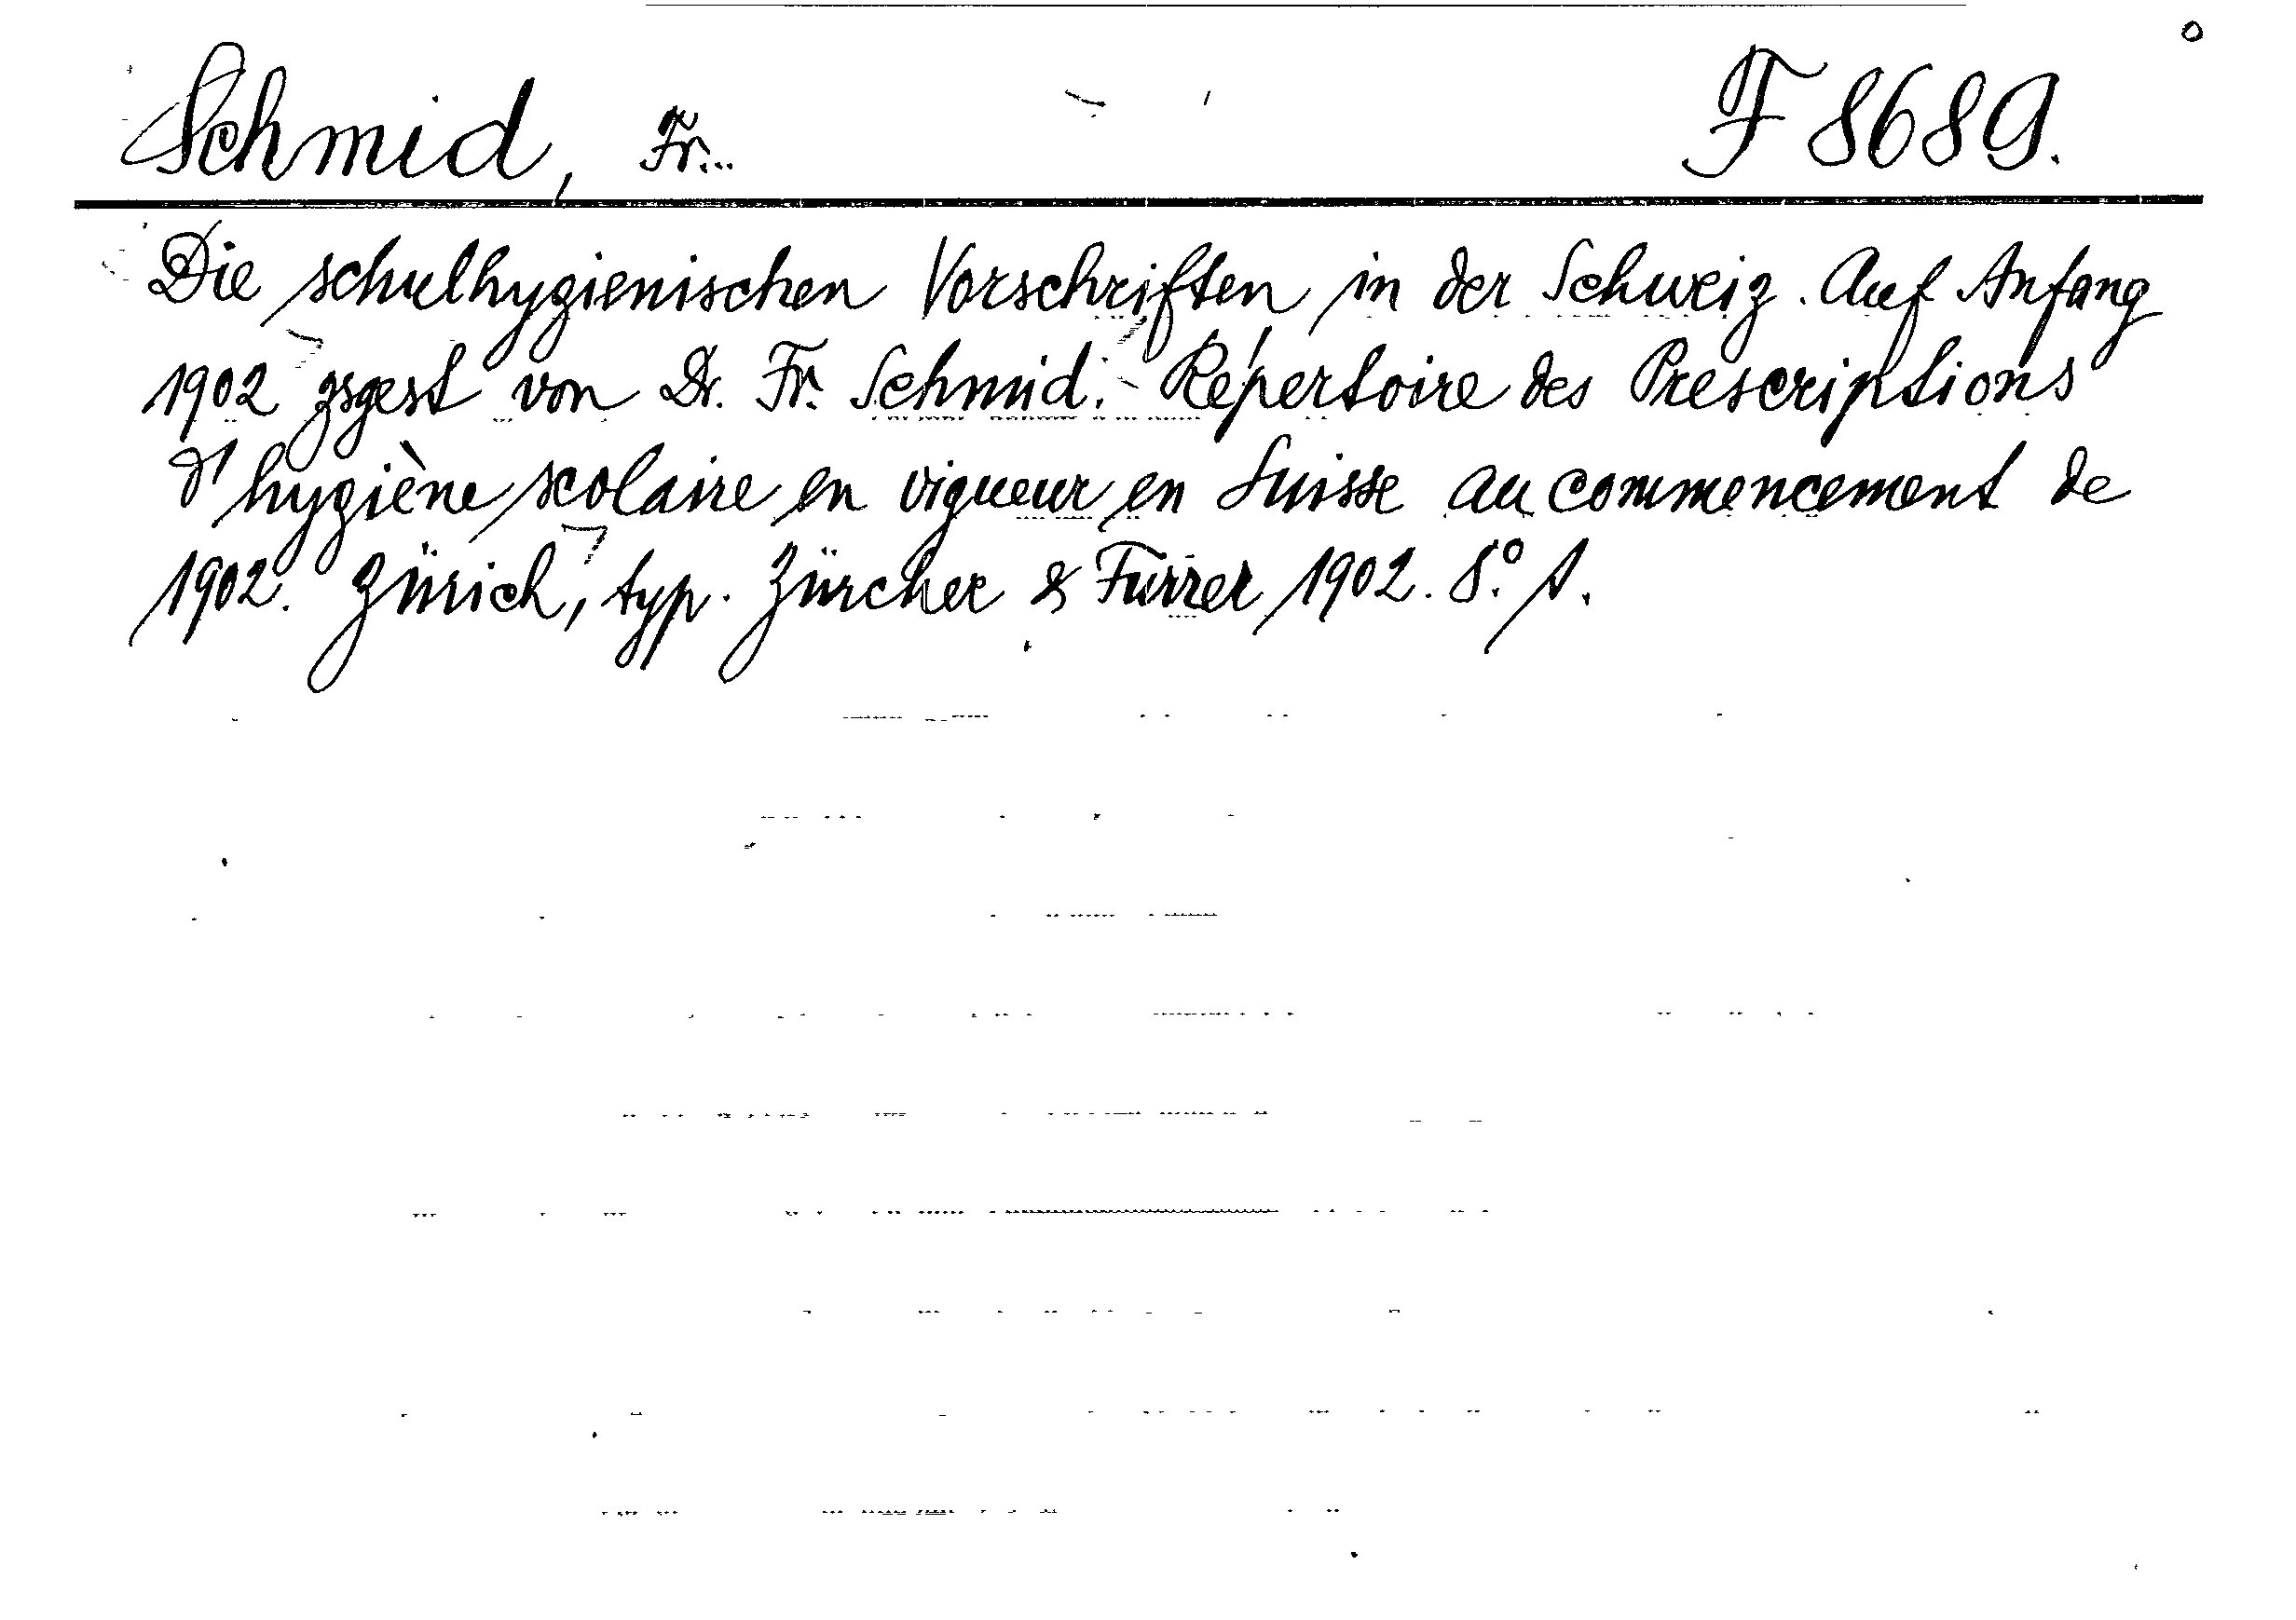 Schmid, Fr... F 8689.
Die schulhygienischen Vorschriften in der Schweiz. Auf Anfang
1902 zsgest von Dr. Fr. Schmid. - Répertoire des Prescriptions
d'hygiène scolaire en vigueur en Suisse au commencement de
1902. Zürich, typ. Zürcher & Furrer 1902. 8.°